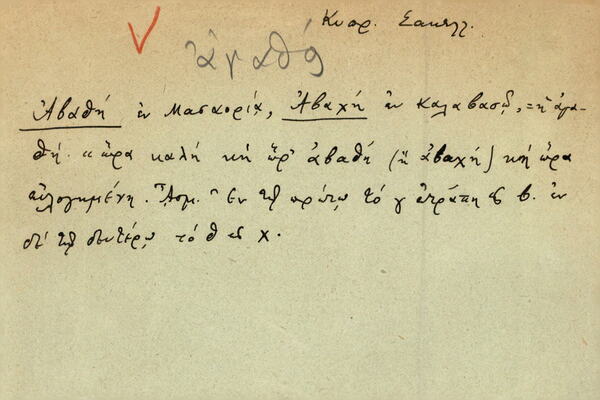 Κυπρ. Σακελλ.
ἀγαθός
Ἀβαθή ἐν Μασαορίᾳ, Ἀβαχή ἐν Καλαβασῷ, = ἡ ἀγα-
θή. "ὥρα καλή κἠ ὥρ' ἀβαθή (ἢ ἀβαχή) κἠ ὥρα
εὐλογημένη. Ἆσμ." Ἐν τῷ πρώτῳ τὸ γ ἐτράπη εἰς β. ἐν
δὲ τῷ δευτέρῳ τὸ θ εἰς χ.